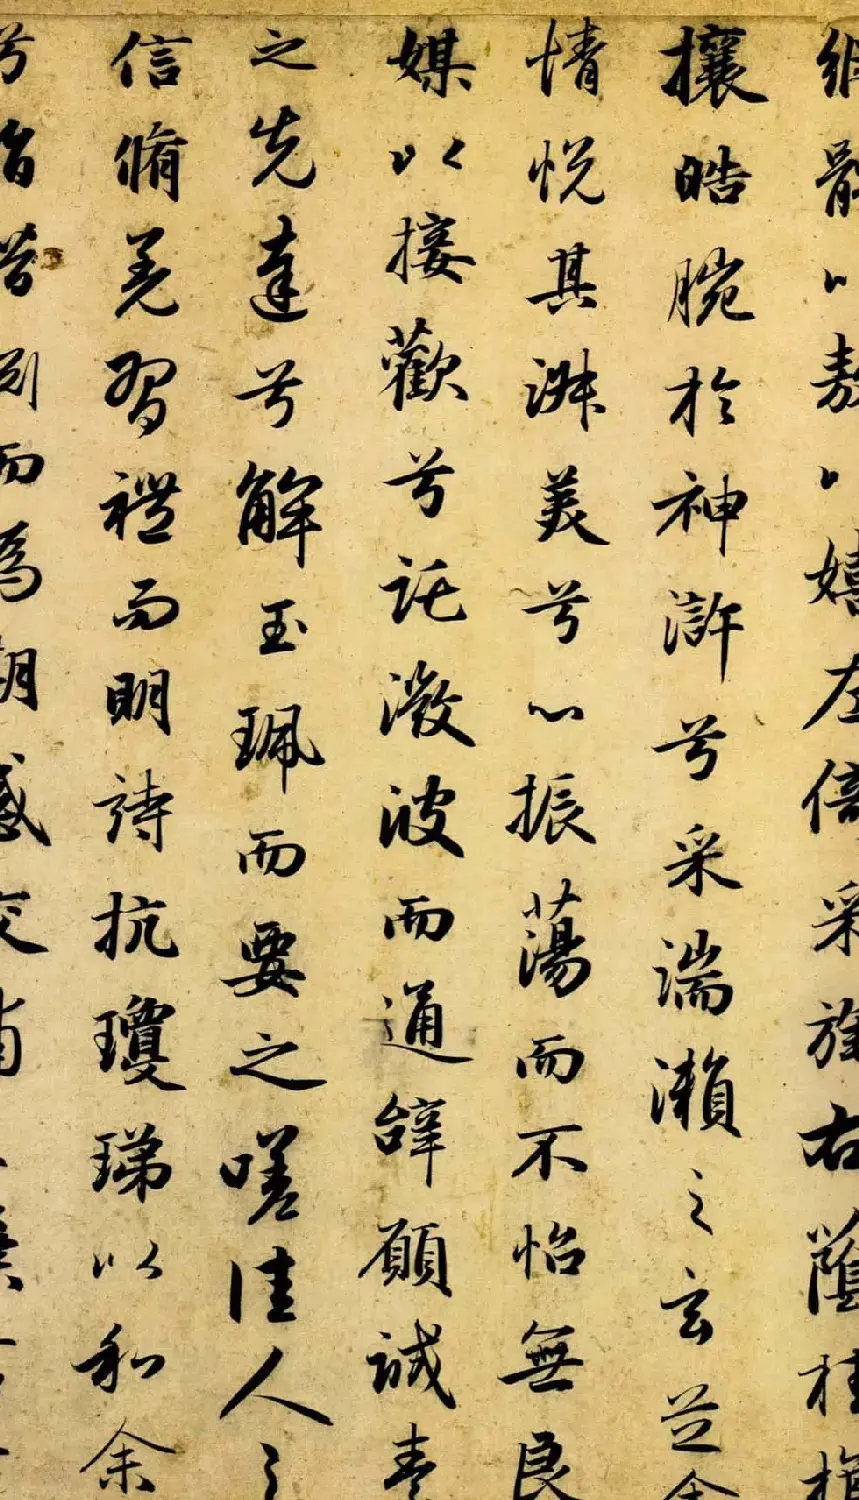 縱體以敖以嬉左倚采旄右蔭桂旗
攘皓腕於神滸兮采湍瀨之玄芝余
情悅其淑美兮心振蕩而不怡無良
媒以接歡兮託微波而通辭願誠素
之先達兮解玉珮而要之嗟佳人之
信脩羌習禮而明詩抗瓊珶以和余
兮指潛淵而為期感交甫